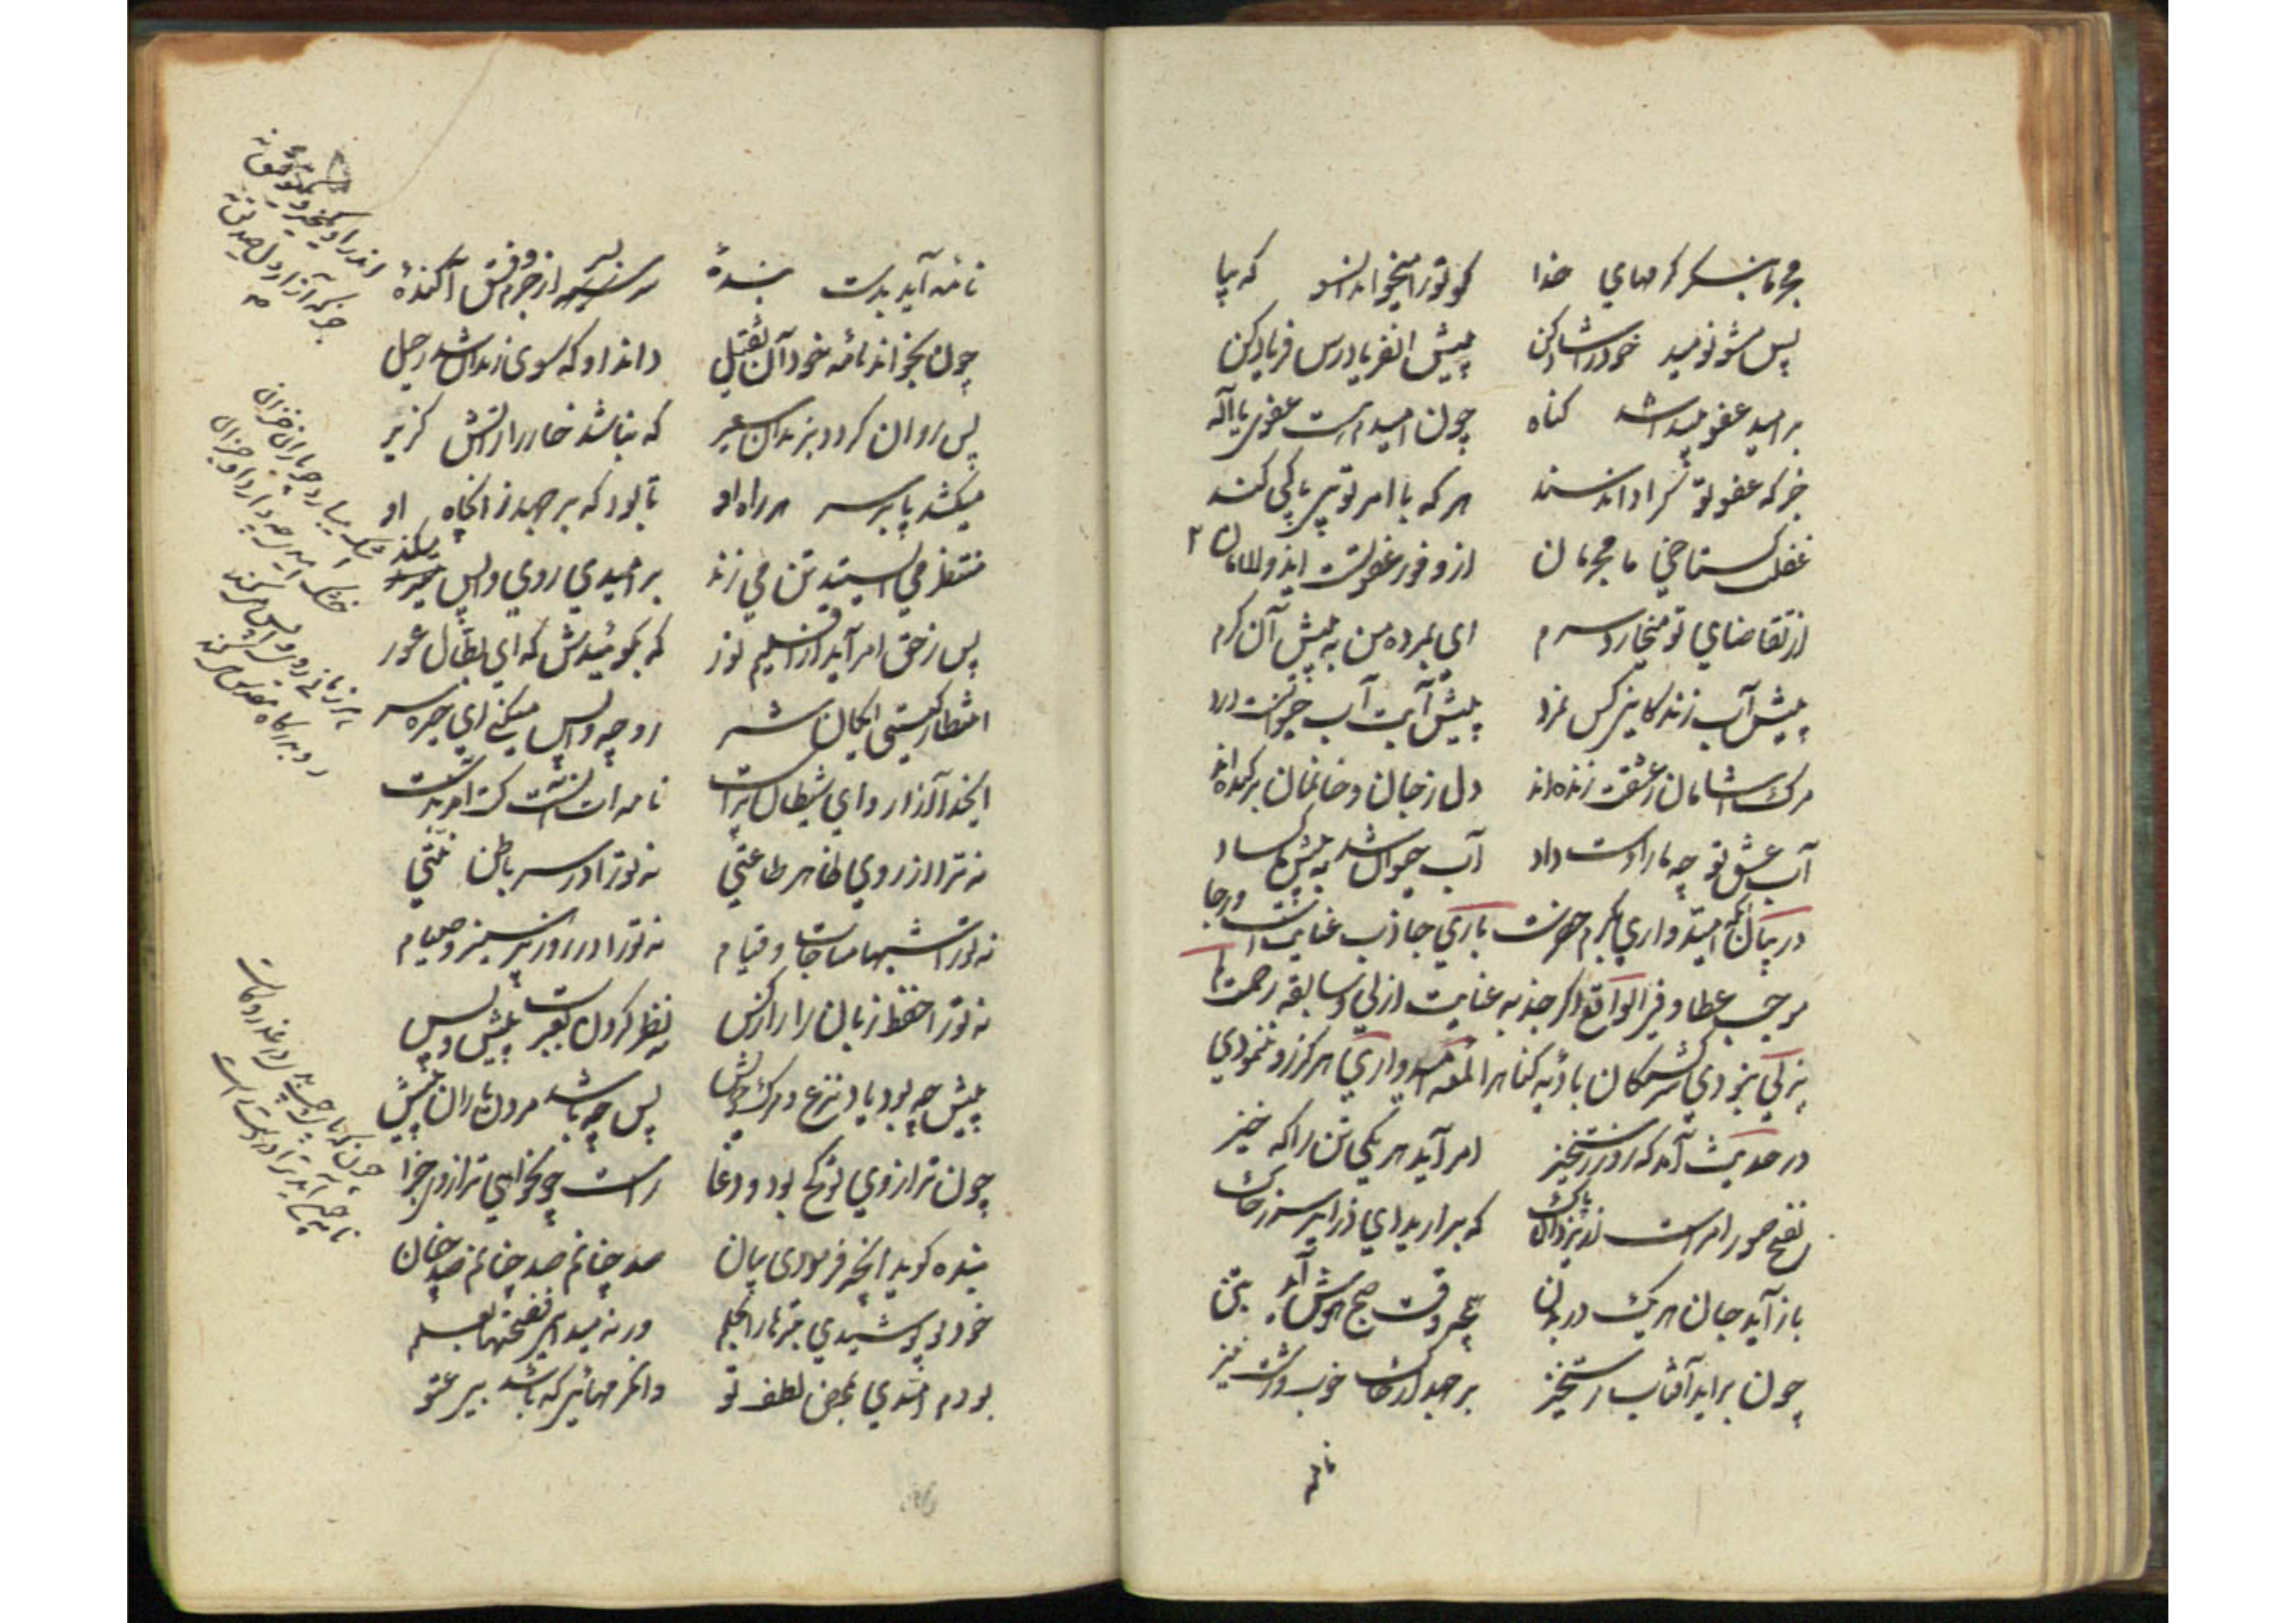 مجرما بنگر کرمهای خدا کو ترا میخواند آنسو که بیا
پس مشو نومید خود را شاد کن پیش آن فریادرس فریاد کن
بر امید عفو گناه چون امیدم عفوی یا اله
جز که عفو تو کرا دارد سند هر که با امر تو بی باکی کند
غفلت و گستاخی ما مجرمان از وفور عفو تست ای
از تقاضای تو میخارد سرم ای بمرده من به پیش آن کرم
پیش آب زندگانی کس نمرد پیش آبت آب حیوانست درد
مرگ آشامان ز عشقت زنده اند دل ز جان و خانمان برکنده اند
آب عشق تو چو ما را دست داد آب حیوان شد به پیش ما کساد
در بیان آنکه امیدواری بکرم حضرت باری جاذب عنایت است و رجا
موجب عطا و فی الواقع اگر جذبه عنایت ازلی و سابقه رحمت
لم یزلی نبودی سرگشتگان بادیه گناه را امیدواری هرگز رو ننمودی
در حدیث آمد که روز رستخیز امر آید هر یکی تن را که خیز
نفخ صور امر است از یزدان پاک که برآرید ای ذرایر سر ز خاک
باز آید جان هر یک در بدن همچو وقت صبح هوش آید بتن
چون برآید آفتاب رستخیز برجهند از خاک خوب و زشت نیز
نامه
نامه آید بدست بنده سر سیه از جرم و فسق آکنده
چون بخواند نامه خود آن ثقیل داند او که سوی زندان شد رحیل
پس روان گردد بزندان سعیر که نباشد خار را ز آتش گزیر
میکشد پا بر سر هر راه او تا بود که برجهد ز آن چاه او
منتظر می ایستد تن می زند بر امیدی روی واپس میکند
پس ز حق امر آید از اقلیم نور که بگوئیدش که ای بطال عور
انتظار کیستی ای کان شر رو چه واپس میکنی ای خیره سر
ای خدا آزار و ای شیطان پرست نامه ات آنست کت آمد بدست
نه ترا از روی ظاهر طاعتی نه ترا در سر باطن نیتی
نه ترا شبها مناجات و قیام نه ترا در روز پرهیز و صیام
نه ترا حفظ زبان ز آزار کس نه نظر کردن بعبرت پیش و پس
پیش چه بود یاد نزع و مرگ خویش پس چه باشد مردن یاران پیش
چون ترازوی تو کج بود و دغا راست چون خواهی ترازوی جزا
بنده گوید آنچه فرمودی بیان صد چنانم صد چنانم صد چنان
خود تو پوشیدی بترها را بحلم ورنه میدانی فضیحتها بعلم
بودم امیدی بمحض لطف تو
اندر او یک خیر و یک توفیق نه
جز که آزار دل صدیق نه
اشک میبارد چو باران خزان
خشک امیدی چه دارد او جز آن
هر زمانی روی واپس میکند
رو بدرگاه مقدس میکند
چونکه پای چپ بدی در غدر و کاست
نامه چون آید ترا در دست راست